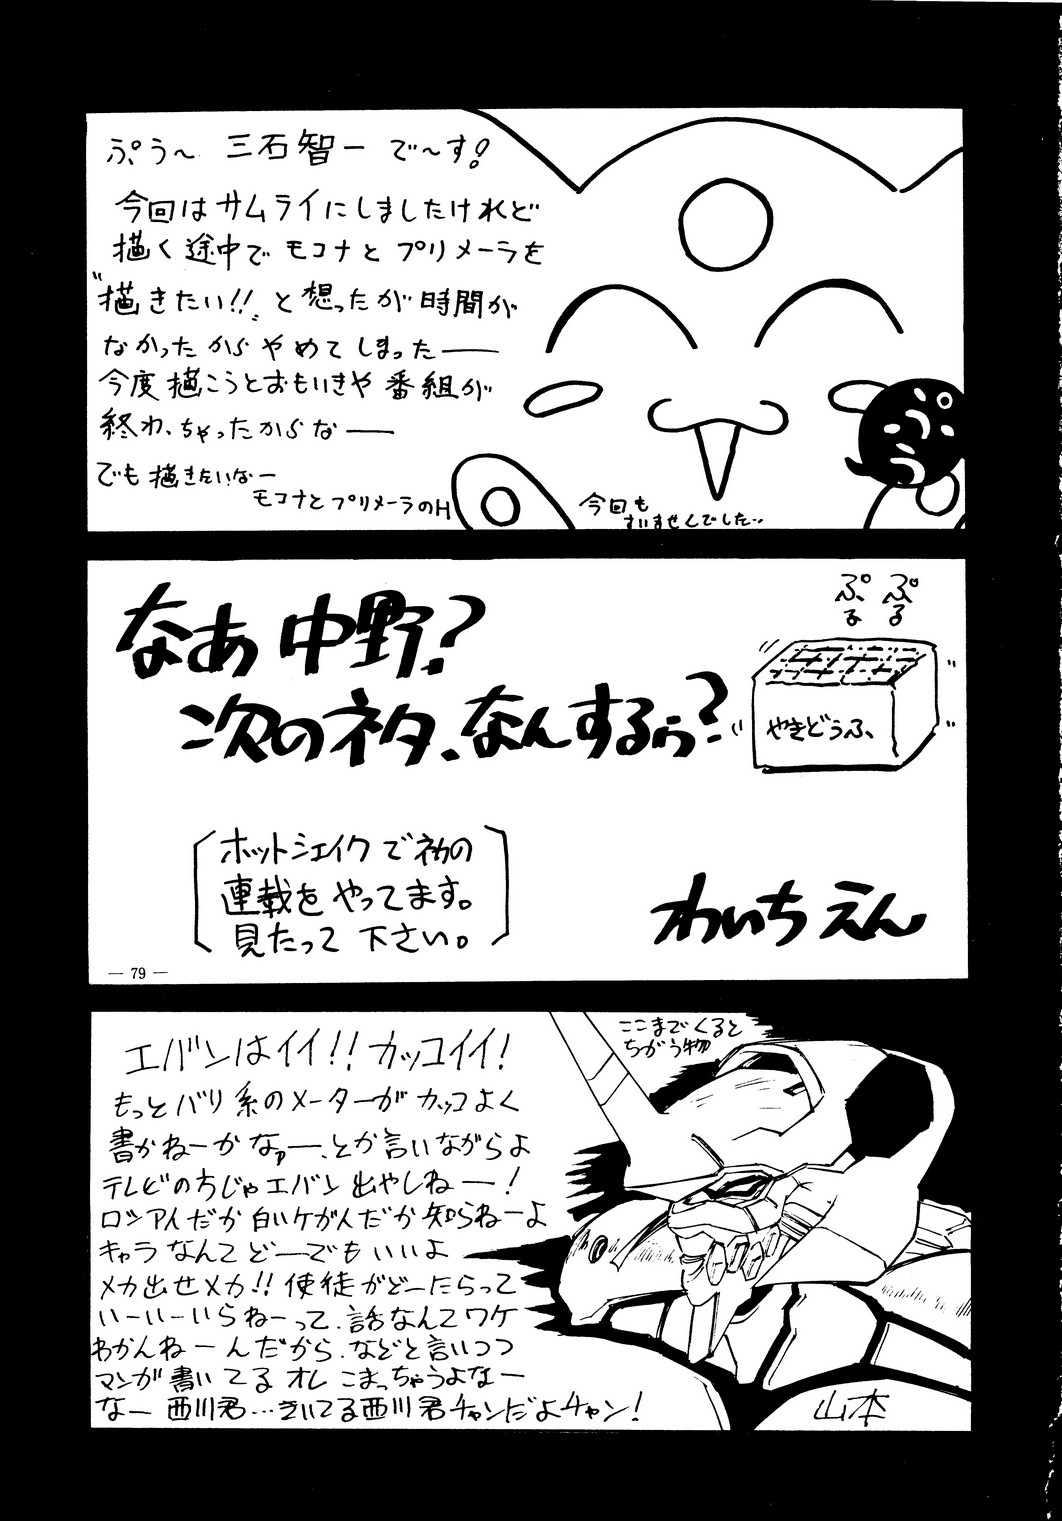 ぷぅ〜 三石智一 で〜す!
今回はサムライにしましたけれど
描く途中で モコナと プリメーラを
〝描きたい!!〟と 想ったが 時間が
なかったからやめてしまった――
今度 描こうとおもいきや 番組が
終わっちゃったからな――
でも 描きたいなー
モコナとプリメーラのH
今回も
すいませんでした…
なあ 中野?
次のネタ、なんするぅ?
ぷる ぷる
やきどうふ
ホットシェイクで初の
連載を やってます。
見たって 下さい。
わいち えん
— 79 —
エバンはイイ!! カッコイイ!
もっとバリ系のメーターが カッコよく
書かねーかなァ――、とか言いながらよ
テレビのちじゃエバン出やしねー!
ロンアんだか 白いケがんだか 知らねーよ
キャラなんて どーでもいいよ
メカ出せメカ!! 使徒がどーたらって
いーいーいらねーって、話なんてワケ
わかんねーんだから、などと言いつつ
マンガ書いてる オレ こまっちゃうよなー
なー 西川君…きいてる西川君チャンだよチャン!
ここまでくると
ちがう物
山本